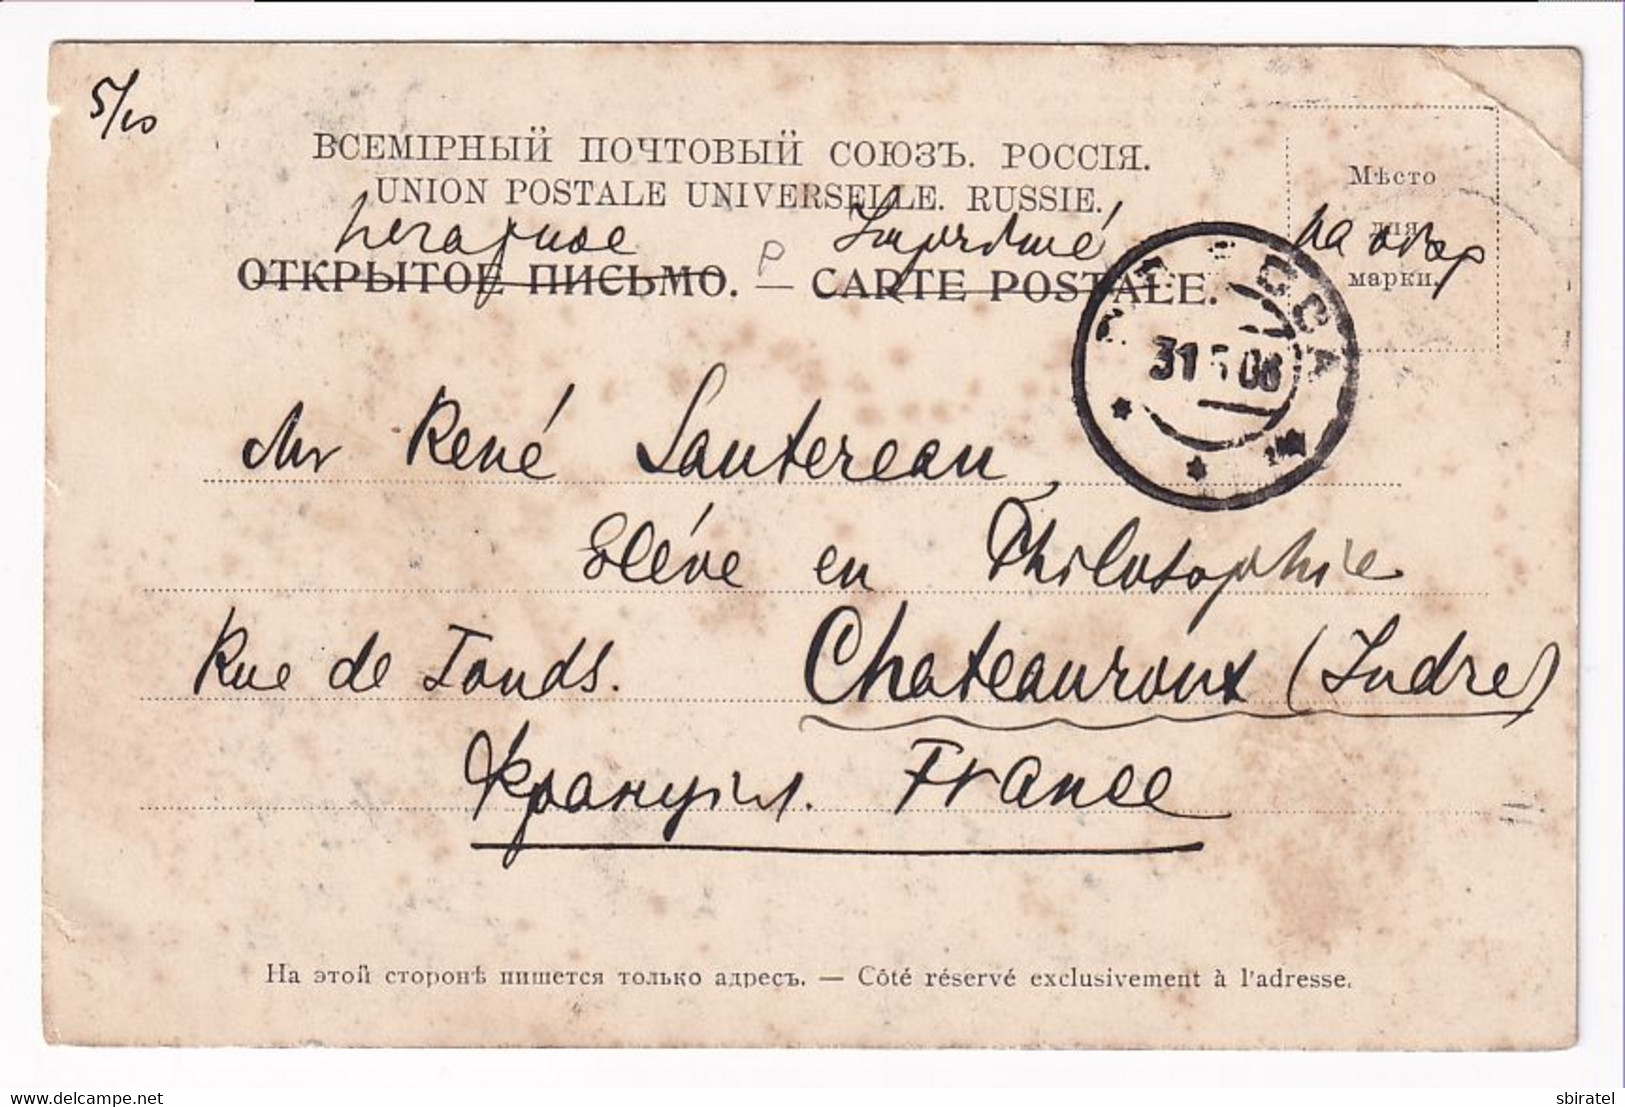 5/10
ВСЕМІРНЫЙ ПОЧТОВЫЙ СОЮЗЪ. РОССІЯ.
UNION POSTALE UNIVERSELLE. RUSSIE.
Мѣсто
для
марки.
печатное Imprimé на обор
ОТКРЫТОЕ ПИСЬМО. — CARTE POSTALE.
31 5 08
Mr René Sautereau
Elève en Philosophie
Rue de Fonds. Chateauroux (Indre)
Франція. France
На этой сторонѣ пишется только адресъ. — Côté réservé exclusivement à l'adresse.
sbiratel